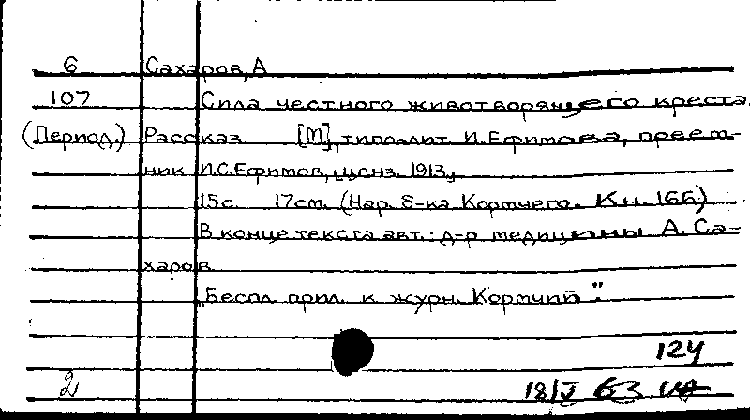 6 Сахаров, А
107 Сила честного животворящего креста.
(Период.) Рассказ [М], типо-лит И. Ефимова, преем-
ник И.С. Ефимов, ценз. 1913,
15с. 17см. (Нар. б-ка Кормчего. Кн. 166)
В конце текста авт.: д-р медицины А. Са-
харов
„Беспл. прил. к журн. Кормчий".
124
2 18/V 63